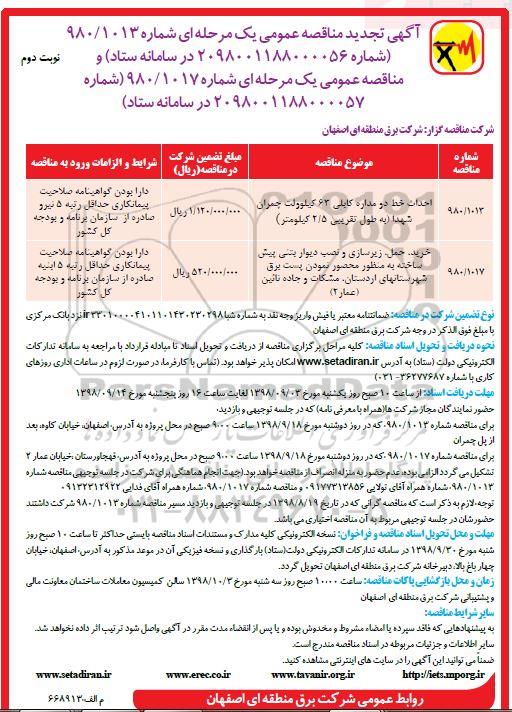 آگهی تجدید مناقصه عمومی یک مرحله ای شماره ۹۸۰/۱۰۱۳
(شماره ۲۰۹۸۰۰۱۱۸۸۰۰۰۰۵۶ در سامانه ستاد) و
مناقصه عمومی یک مرحله ای شماره ۹۸۰/۱۰۱۷ (شماره
۲۰۹۸۰۰۱۱۸۸۰۰۰۰۵۷ در سامانه ستاد)
نوبت دوم
شرکت مناقصه گزار: شرکت برق منطقه ای اصفهان
شماره مناقصه
موضوع مناقصه
مبلغ تضمین شرکت در مناقصه(ریال)
شرایط و الزامات ورود به مناقصه
۹۸۰/۱۰۱۳
احداث خط دو مداره کابلی ۶۳ کیلوولت چمران
شهدا (به طول تقریبی ۲/۵ کیلومتر)
۱/۱۲۰/۰۰۰/۰۰۰ ریال
دارا بودن گواهینامه صلاحیت
پیمانکاری حداقل رتبه ۵ نیرو
صادره از سازمان برنامه و بودجه
کل کشور
۹۸۰/۱۰۱۷
خرید، حمل، زیرسازی و نصب دیوار بتنی پیش
ساخته به منظور محصور نمودن پست برق
شهرستانهای اردستان، مشکات و جاده نائین
(عمار۲)
۵۲۰/۰۰۰/۰۰۰ ریال
دارا بودن گواهینامه صلاحیت
پیمانکاری حداقل رتبه ۵ ابنیه
صادره از سازمان برنامه و بودجه
کل کشور
نوع تضمین شرکت در مناقصه: ضمانتنامه معتبر یا فیش واریز وجه نقد به شماره شبا ir۳۳۰۱۰۰۰۰۴۱۰۱۱۰۱۴۳۰۲۳۰۲۹۸ نزد بانک مرکزی
با مبلغ فوق الذکر در وجه شرکت برق منطقه ای اصفهان
نحوه دریافت و تحویل اسناد مناقصه: کلیه مراحل برگزاری مناقصه از دریافت و تحویل اسناد تا مبادله قرارداد با مراجعه به سامانه تدارکات
الکترونیکی دولت (ستاد) به آدرس www.setadiran.ir امکان پذیر خواهد بود. (تماس با کارفرما، در صورت لزوم در ساعات اداری روزهای
کاری با شماره ۳۶۲۷۷۶۸۷-۰۳۱)
مهلت دریافت اسناد: از ساعت ۱۰ صبح روز یکشنبه مورخ ۱۳۹۸/۰۹/۰۳ لغایت ساعت ۱۶ روز پنجشنبه مورخ ۱۳۹۸/۰۹/۱۴
حضور نمایندگان مجاز شرکت ها(همراه با معرفی نامه) که در جلسه توجیهی و بازدید:
برای مناقصه شماره ۹۸۰/۱۰۱۳، که در روز دوشنبه مورخ ۱۳۹۸/۹/۱۸ ساعت ۹:۰۰ صبح در محل پروژه به آدرس: اصفهان، خیابان کاوه، بعد
از پل چمران
برای مناقصه شماره ۹۸۰/۱۰۱۷، که در روز دوشنبه مورخ ۱۳۹۸/۹/۱۸ ساعت ۹:۰۰ صبح در محل پروژه به آدرس: قهجاورستان، خیابان عمار ۲
تشکیل می گردد الزامی بوده، عدم حضور به منزله انصراف از مناقصه خواهد بود.(جهت انجام هماهنگی برای شرکت در جلسه توجیهی مناقصه شماره
۹۸۰/۱۰۱۳، شماره همراه آقای تولایی ۰۹۱۷۷۳۱۳۸۵۶ و مناقصه شماره ۹۸۰/۱۰۱۷، شماره همراه آقای فدایی ۰۹۱۳۲۳۱۲۹۲۲
توجه: لازم به ذکر است که مناقصه گرانی که در تاریخ ۱۳۹۸/۸/۱۹ در جلسه توجیهی و بازدید مسیر مناقصه شماره ۹۸۰/۱۰۱۳ شرکت داشتند
حضورشان در جلسه توجیهی مربوط به آن مناقصه اختیاری می باشد.
مهلت و محل تحویل اسناد مناقصه و فراخوان: نسخه الکترونیکی کلیه مدارک و مستندات اسناد مناقصه بایستی حداکثر تا ساعت ۱۰ صبح روز
شنبه مورخ ۱۳۹۸/۹/۳۰ در سامانه تدارکات الکترونیکی دولت(ستاد) بارگذاری و نسخه فیزیکی آن در موعد مذکور به آدرس: اصفهان، خیابان
چهار باغ بالا، دبیرخانه شرکت برق منطقه ای اصفهان تحویل گردد.
زمان و محل بازگشایی پاکات مناقصه: ساعت ۱۰:۰۰ صبح روز سه شنبه مورخ ۱۳۹۸/۱۰/۳ سالن کمیسیون معاملات ساختمان معاونت مالی
و پشتیبانی شرکت برق منطقه ای اصفهان
سایر شرایط مناقصه:
به پیشنهادهایی که فاقد سپرده یا امضاء مشروط و مخدوش بوده و یا پس از انقضاء مدت مقرر در آگهی واصل شود ترتیب اثر داده نخواهد شد.
سایر اطلاعات و جزئیات مربوطه در اسناد مناقصه مندرج است.
ضمناً می توانید این آگهی را در سایت های اینترنتی مشاهده کنید.
http://iets.mporg.ir www.tavanir.org.ir www.erec.co.ir www.setadiran.ir
روابط عمومی شرکت برق منطقه ای اصفهان
م الف: ۶۶۸۹۱۳